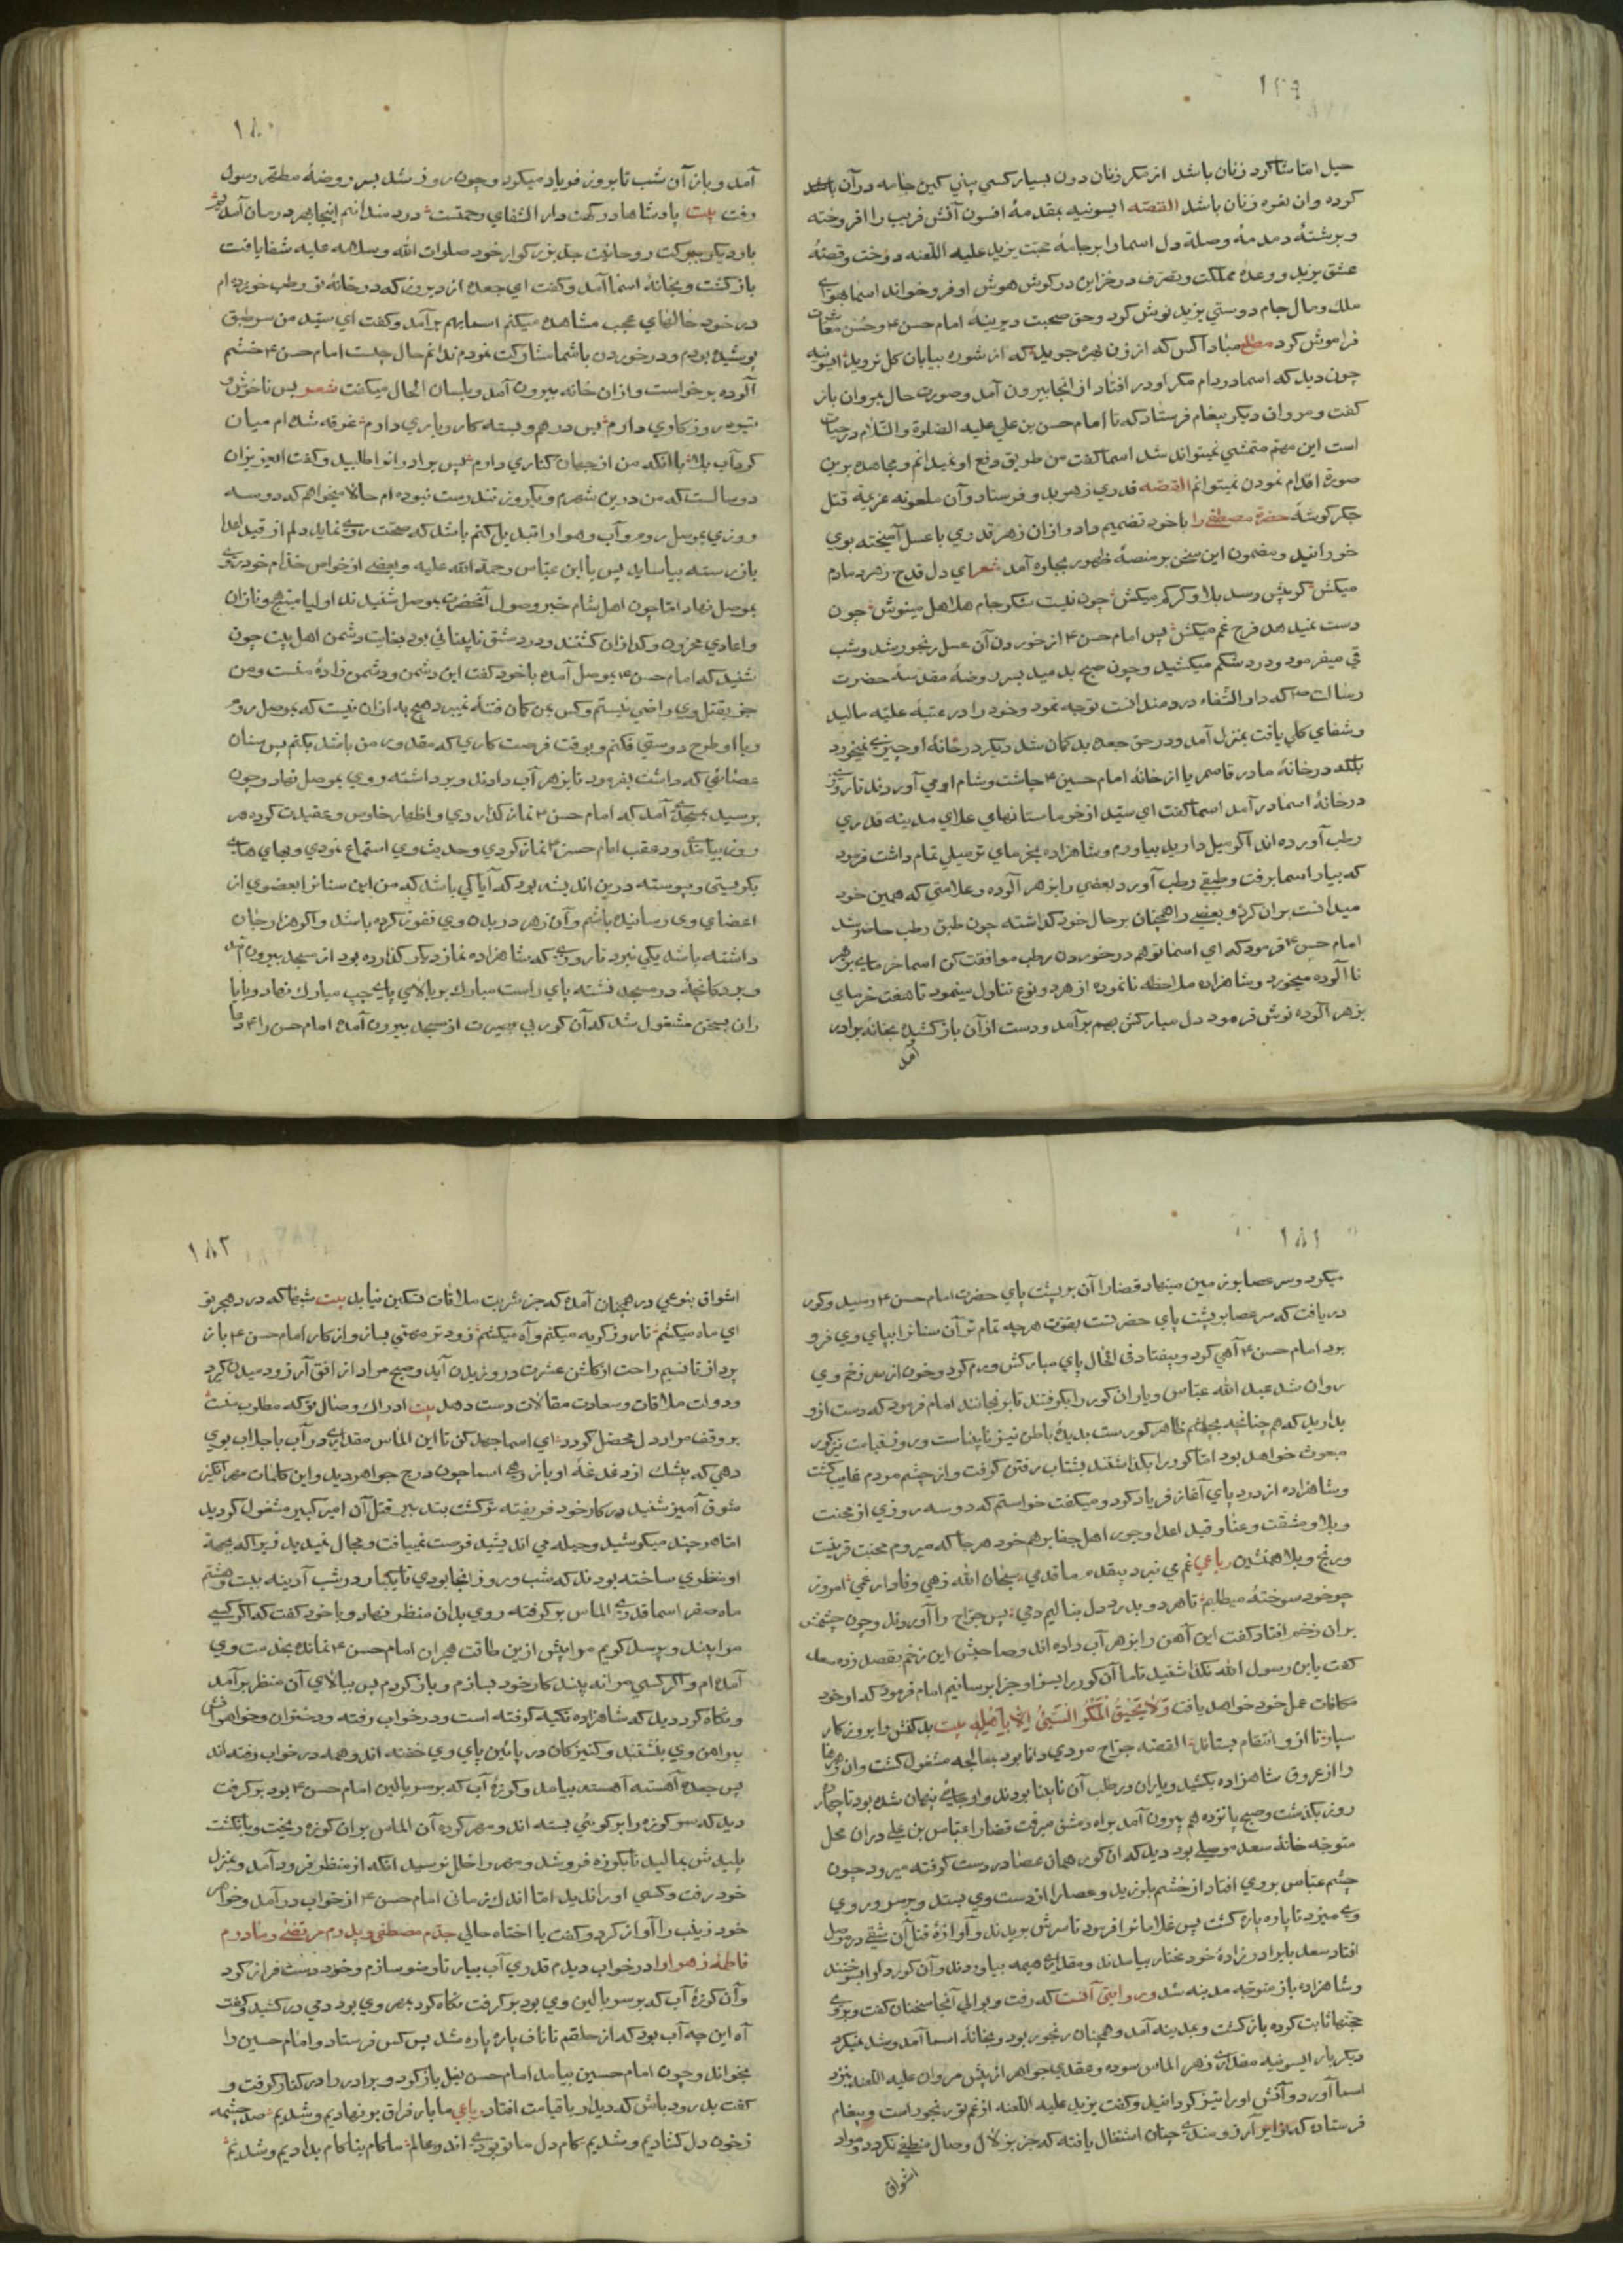 ۱۷۹
حیل اما شاکرد زنان باشد از مکر زنان دون بسیار کسی بینی کین جامه در آن
کرده وان نفره زنان باشد القصه ایسونیه بمقدمهٔ افسون آتش فریب را افروخته
و برشتهٔ دمدمهٔ وصلهٔ دل اسما را بر جامهٔ محبت یزید علیه اللعنه دوخت وقصهٔ
عشق یزید و وعدهٔ مملکت و تصرف در خزاین در کوش هوش او فرو خواند اسما بهوای
ملک ومال جام دوستی یزید نوش کرد وحق صحبت دیرینهٔ امام حسن ۴ وحسن معاشرت
فراموش کرد مطلع مباد آکس که از زن بهره جوید که از شوره بیابان کل نروید ایسونیه
چون دید که اسما در دام مکر او در افتاد از انجا بیرون آمد وصورت حال بمروان باز
کفت ومروان دیکر پیغام فرستاد که تا امام حسن بن علی علیه الصلوة والسلام در حیات
است این مهم متمشی نمیتواند شد اسما کفت من طریق دفع او نمیدانم ومجاهده برین
صورة اقدام نمودن نمیتوانم القصه قدری زهر بد وفرستاد وآن ملعونه عزیمة قتل
جکر کوشهٔ حضرة مصطفی را باخود تضمیم داد واز ان زهر قدری با عسل آمیخته بوی
خورانید ومضمون این سخن بر منصهٔ ظهور بجلوه آمد شعر ای دل قدح زهر دمادم
میکش کر پیش رسد بلا وکر کم میکش چون نیست شکر جام هلاهل مینوش چون
دست نمیدهد فرح غم میکش پس امام حسن ۴ از خوردن آن عسل رنجور شد وشب
قی میفرمود ودرد شکم میکشید وچون صبح بدمید بسر روضهٔ مقدسهٔ حضرت
رسالت ص که دار الشفاء دردمندانست توجه نمود وخود را در عتبهٔ علیه مالید
وشفای کلی یافت بمنزل آمد ودر حق جعده بدکمان شد دیکر در خانهٔ او چیزی نمیخورد
بلکه در خانهٔ مادر قاسم یا از خانهٔ امام حسین ۴ چاشت وشام او می آوردند تا روزی
در خانهٔ اسما در آمد اسما کفت ای سید از خرماستانهای علای مدینه قدری
رطب آورده اند اکر میل دارید بیاورم وشاهزاده بخرمای تر میلی تمام داشت فرمود
که بیار اسما برفت وطبقی رطب آورد بعضی را بزهر آلوده وعلامتی که همین خود
میدانست بران کرده وبعضی را همچنان بر حال خود کذاشته چون طبق رطب حاضر شد
امام حسن ۴ فرمود که ای اسما تو هم در خوردن رطب موافقت کن اسما خرمای بزهر
نا آلوده میخورد وشاهزاده ملاحظه نا نموده از هر دو نوع تناول مینمود تا هفت خرمای
بزهر آلوده نوش فرمود دل مبارکش بهم برآمد ودست از آن باز کشید بخانهٔ برادر
آمد
۱۸۰
آمد وباز آن شب تا بروز فریاد میکرد وچون روز شد بسر روضهٔ مطهر رسول
رفت بیت پادشاها درکهت دار الشفای رحمتست درد مندانم اینجا بهر درمان آمدیم
بار دیکر ببرکت روحانیت جد بزرکوار خود صلوات الله وسلامه علیه شفا یافت
باز کشت وبخانهٔ اسما آمد وکفت ای جعده از دیروز که در خانهٔ تو رطب خورده ام
در خود حالتهای عجب مشاهده میکنم اسما بهم برآمد وکفت ای سید من سر طبق
پوشیده بودم ودر خوردن باشما مشارکت نمودم ندانم حال چیست امام حسن ۴ خشم
آلوده برخواست واز ان خانه بیرون آمد وبلسان الحال میکفت شعر بس ناخوش و
تیره روزکاری دارم بس درهم وبسته کار وباری دارم غرقه شده ام میان
کرداب بلا با آنکه من از جهان کناری دارم پس برادرانرا طلبید وکفت العزیزان
دو سالست که من درین شهرم ویکروز تندرست نبوده ام حالا میخواهم که دو سه
روزی بموصل روم وآب وهوا را تبدیل کنم باشد که صحت روی نماید دلم از قید اعدا
باز رسته بیاساید پس با ابن عباس رحمة الله علیه وبعضی از خواص خدام خود روی
بموصل نهاد اما چون اهل شام خبر وصول آنحضرت بموصل شنیدند اولیا مبتهج ونازان
واعادی محزون وکدازان کشتند ودر دمشق نابینائی بود بغایت دشمن اهل بیت چون
شنید که امام حسن ۴ بموصل آمده باخود کفت این دشمن ودشمن زادهٔ منست ومن
جز بقتل وی راضی نیستم وکس بمن کمان فتنه نمیبرد هیچ به از ان نیست که بموصل روم
وبا او طرح دوستی فکنم وبوقت فرصت کاری که مقدور من باشد بکنم پس سنان
عصائی که داشت بفرمود تا بزهر آب دادند وبرداشته روی بموصل نهاد وچون
برسید بمسجدی آمد که امام حسن ۴ نماز کذاردی واظهار خلوص وعقیدت کرده هر
روز بیامدی ودر عقب امام حسن ۴ نماز کردی وحدیث وی استماع نمودی وبهای های
بکریستی وپیوسته درین اندیشه بود که آیا کی باشد که من این سنانرا بعضوی از
اعضای وی رسانیده باشم وآن زهر در بدن وی نفوذ کرده باشد واکر هزار جان
داشته باشد یکی نبرد تا روزی که شاهزاده نماز دیکر کذارده بود از مسجد بیرون آمد
وبر دکانچهٔ در مسجد نشسته پای راست مبارک بر بالای پای چپ مبارک نهاد وبا یا
ران بسخن مشغول شد که آن کور بی بصیرت از مسجد بیرون آمده امام حسن را ۴ دعا
۱۸۱
میکرد وسر عصا بزمین مینهاد قضا را آن بر پشت پای حضرت امام حسن ۴ رسید وکور
دریافت که سر عصا بر پشت پای حضرتست بقوت هر چه تمام تر آن سنانرا بپای وی فرو
برد امام حسن ۴ آهی کرد وبیفتاد فی الحال پای مبارکش ورم کرد وخون از سر زخم وی
روان شد عبد الله عباس ویاران کور را بکرفتند تا برنجانند امام فرمود که دست ازو
بدارید که هم چنانچه بچشم ظاهر کورست بدیدهٔ باطن نیز نابیناست وروز قیامت نیز کور
مبعوث خواهد بود اما کور را بکذاشتند بشتاب رفتن کرفت واز چشم مردم غایب کشت
وشاهزاده از درد پای آغاز فریاد کرد ومیکفت خواستم که دو سه روزی از محنت
وبلا ومشقت وعنا وقید اعدا وجور اهل جفا برهم خود هر جا که میروم محنت قرینست
ورنج وبلا همنشین رباعی غم می نبرد بیقدم ما قدمی سبحان الله زهی وفادار غمی امروز
چو خود سوختهٔ میطلبم تا هر دو بدرد دل بنالیم دمی پس جراح را آوردند وچون چشمش
بران زخم افتاد کفت این آهن را بزهر آب داده اند وصاحبش این زخم بقصد زده سعد
کفت یا بن رسول الله نکذاشتید تا ما آن کور را بسزا وجزا برسانیم امام فرمود که او خود
مکافات عمل خود خواهد یافت وَلَا یَحِیقُ الْمَکْرُ السَّیِّئُ اِلَّا بِاَهْلِهِ بیت بد کنش را بروزکار
سپار تا ازو انتقام بستاند القصه جراح مردی دانا بود بمعالجه مشغول کشت وان زهرها
را از عروق شاهزاده بکشید ویاران در طلب آن نابینا بودند واو جای پنهان شده بود تا چهارده
روز بکذشت وصبح پانزدهم بیرون آمد براه دمشق میرفت قضا را عباس بن علی دران محل
متوجه خانهٔ سعد موصلی بود دید که ان کور همان عصا در دست کرفته میرود چون
چشم عباس بروی افتاد از خشم بلرزید وعصا را از دست وی بستد وبر سر وروی
وی میزد تا پاره پاره کشت پس غلامانرا فرمود تا سرش بریدند وآوازهٔ قتل آن شقی در موصل
افتاد سعد با برادر زادهٔ خود مختار بیامدند ومقداری هیمه بیاوردند وآن کور را بسوختند
وشاهزاده باز متوجه مدینه شد ودر روایتی آنست که رفت وبوالی آنجا سخنان کفت وبروی
حجتها ثابت کرده باز کشت وبمدینه آمد وهمچنان رنجور بود وبخانهٔ اسما آمد وشد نمیکرد
دیکر بار ایسونیه مقداری زهر الماس سوده وعقدی جواهر از پیش مروان علیه اللعنه بنزد
اسما آورد وآتش او را تیز کردانید وکفت یزید علیه اللعنه از غم تو رنجور است وپیغام
فرستاده که نوایر آرزومندی چنان اشتعال یافته که جز بزلال وصال منطفی نکردد ومواد
اشواق
۱۸۲
اشواق بنوعی در هیجان آمده که جز شربت ملاقات تسکین نیابد بیت شبها که در دهجر تو
ای ماه میکشم تا روز کریه میکنم وآه میکشم زود تر مهمتی بساز واز کار امام حسن ۴ باز
پرداز تا نسیم راحت از کلشن عشرت در وزیدن آید وصبح مراد از افق آرزو دمیدن کیرد
ودولت ملاقات وسعادت مقالات دست دهد بیت ادراک وصال تو که مطلوب منست
بر وقف مراد دل محصل کردد ای اسما جهد کن تا این الماس مقداری در آب یا جلاب بوی
دهی که بیشک از دغدغهٔ او باز رهی اسما چون درج جواهر دید واین کلمات مهر انکیز
شوق آمیز شنید در کار خود فریفته تر کشت بتدبیر قتل آن امیر کبیر مشغول کردید
اما هر چند میکوشید وحیله می اندیشید فرصت نمییافت ومجال نمیدید زیرا که بجهة
او منظری ساخته بودند که شب وروز انجا بودی تا یکبار در شب آدینه بیست وهشتم
ماه صفر اسما قدری الماس بر کرفته روی بدان منظر نهاد وبا خود کفت که اکر کسی
مرا بیند وبپرسد کویم مرا بیش ازین طاقت هجران امام حسن ۴ نمانده بخدمت وی
آمده ام واکر کسی مرا نه بیند کار خود بسازم وباز کردم پس ببالای آن منظر برآمد
ونکاه کرد دید که شاهزاده تکیه کرفته است ودر خواب رفته ودختران وخواهرانش
پیرامن وی بنشستند وکنیزکان در پائین پای وی خفته اند وهمه در خواب رفته اند
پس جعده آهسته آهسته بیامد وکوزهٔ آب که بر سر بالین امام حسن ۴ بود بر کرفت
دید که سر کوزه را بر کوئی بسته اند ومهر کرده آن الماس بران کوزه ریخت وبانکشت
پلیدش بمالید تا بکوزه فرو شد ومهر را خلل نرسید انکه از منظر فرود آمد وبمنزل
خود رفت وکسی او را ندید اما اندک زمانی امام حسن ۴ از خواب درآمد وخواهر
خود زینب را آواز کرد وکفت یا اختاه حالی جدم مصطفی وپدرم مرتضی ومادرم
فاطمهٔ زهرا را در خواب دیدم قدری آب بیار تا وضو سازم وخود دست فراز کرد
وآن کوزهٔ آب که بر سر بالین وی بود بر کرفت نکاه کرد بمهر وی بود دمی در کشید وکفت
آه این چه آب بود که از حلقم تا ناف پاره پاره شد پس کس فرستاد وامام حسین را
بخواند وچون امام حسین بیامد امام حسن بغل باز کرد وبرادر را در کنار کرفت و
کفت بدرود باش که دیدار با قیامت افتاد رباعی ما بار فراق بر نهادیم وشدیم صد چشمه
زخون دل کشادیم وشدیم کام دل ما تو بودی اندر عالم ما کام بنا کام بدادیم وشدیم